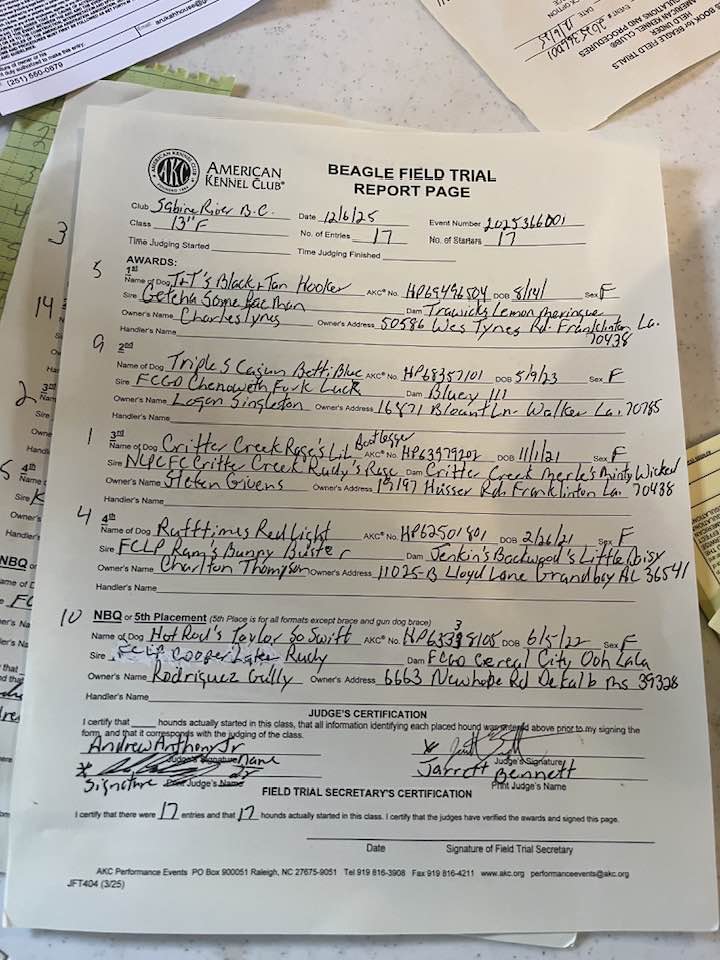 (251) 660-0679
BOOK for BEAGLE FIELD TRIALS
AMERICAN KENNEL CLUB®
AND PROCEDURES
AKC
AMERICAN KENNEL CLUB®
BEAGLE FIELD TRIAL
REPORT PAGE
Club Sabine River B.C. Date 12/6/25 Event Number 2025366001
Class 13" F No. of Entries 17 No. of Starters 17
Time Judging Started Time Judging Finished
AWARDS:
5 1st
Name of Dog T+T's Black + Tan Hooker AKC® No. HP69496504 DOB 8/14/ Sex F
Sire Getcha Some Pac Man Dam Trawicks Lemon Meringue
Owner's Name Charles Tynes Owner's Address 50586 Wes Tynes Rd. Franklinton, La.
70438
Handler's Name
9 2nd
Name of Dog Triple S Cajun Betti Blue AKC® No. HP68357101 DOB 5/9/23 Sex F
Sire FCGD Chenoweth Luck Dam Bluey III
Owner's Name Logan Singleton Owner's Address 16871 Blount Ln. Walker La. 70785
Handler's Name
1 3rd
Name of Dog Critter Creek Rose's Lil Bootlegger AKC® No. HP63979202 DOB 11/1/21 Sex F
Sire NLPC FC Critter Creek Rudy's Rose Dam Critter Creek Merle's Minty Wicked
Owner's Name Steten Givens Owner's Address 19197 Husser Rd. Franklinton La. 70438
Handler's Name
4 4th
Name of Dog Rufftimes Red Light AKC® No. HP62501801 DOB 2/26/21 Sex F
Sire FCLP Ram's Bunny Buster Dam Jenkin's Backwood's Little Daisy
Owner's Name Charlton Thompson Owner's Address 11025-B Lloyd Lane Grandbay AL 36541
Handler's Name
10 NBQ or 5th Placement (5th Place is for all formats except brace and gun dog brace)
Name of Dog Hot Rod's Taylor So Swift AKC® No. HP65338105 DOB 6/5/22 Sex F
Sire FCLP Cooper Lake Rudy Dam FCGD Cereal City Ooh LaLa
Owner's Name Rodriquez Gully Owner's Address 6663 Newhope Rd DeKalb Ms 39328
Handler's Name
JUDGE'S CERTIFICATION
I certify that hounds actually started in this class, that all information identifying each placed hound was entered above prior to my signing the
form, and that it corresponds with the judging of the class.
Andrew Anthony Jr
Judge's Signature Name Judge's Signature
Jarrott Bennett
Signature Print Judge's Name Print Judge's Name
FIELD TRIAL SECRETARY'S CERTIFICATION
I certify that there were 17 entries and that 17 hounds actually started in this class. I certify that the judges have verified the awards and signed this page.
Date Signature of Field Trial Secretary
AKC Performance Events PO Box 900051 Raleigh, NC 27675-9051 Tel 919 816-3908 Fax 919 816-4211 www.akc.org performanceevents@akc.org
JFT404 (3/25)